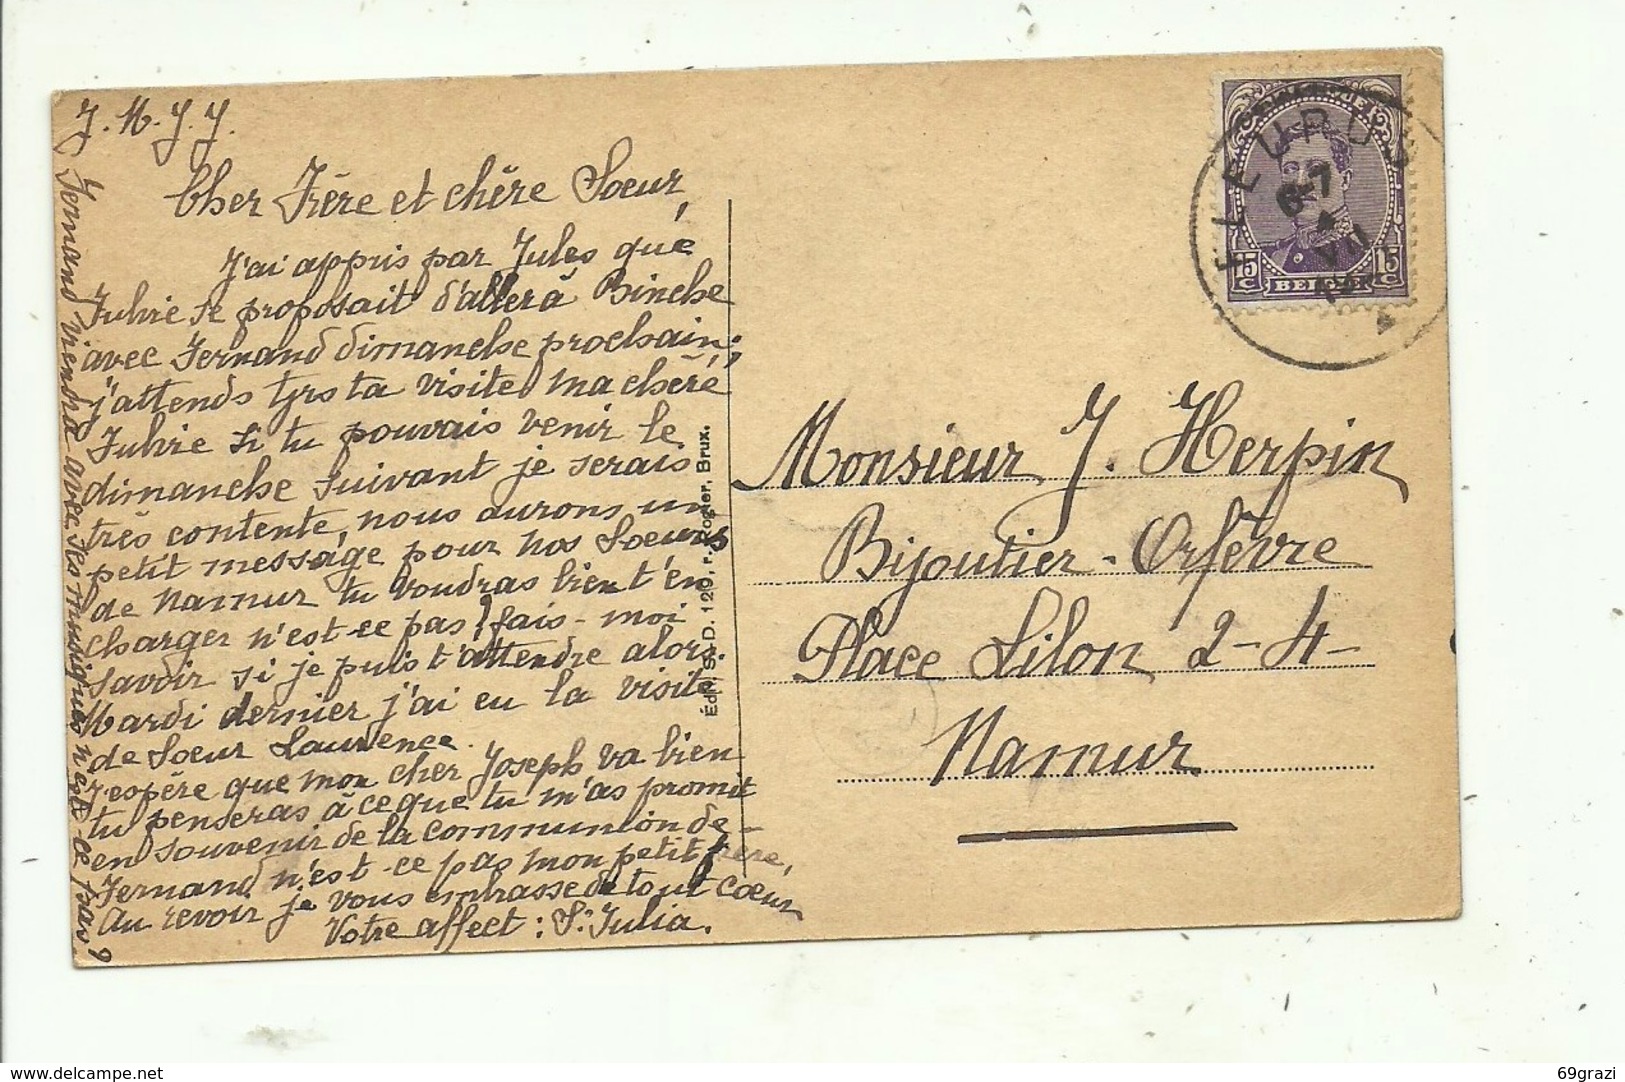 J. M. J. J.
Cher Frère et chère Soeur,
J'ai appris par Jules que
Julvie se proposait d'aller à Binche
avec Fernand dimanche prochain;
j'attends tjrs ta visite ma chère
Julvie si tu pouvais venir le
dimanche suivant je serais
très contente, nous aurons un
petit message pour nos Soeurs
de Namur tu voudras bien t'en
charger n'est-ce pas! fais-moi
savoir si je puis t'attendre alors.
Mardi dernier j'ai eu la visite
de Soeur Laurence.
J'espère que mon cher Joseph va bien
tu penseras à ce que tu m'as promit
en souvenir de la communion de
Fernand n'est-ce pas mon petit frère,
Au revoir je vous embrasse de tout coeur
Votre affect: Sr Julia.
Fernand viendra avec ses musiques n'est-ce pas?
Édit. S.-D. 120, r. Rogier, Brux.
FLEURUS
6-7
15 C BELGIË 15 C
Monsieur J. Herpin
Bijoutier-Orfèvre
Place Lilon 2-4-
Namur
69grazi
delcampe.net